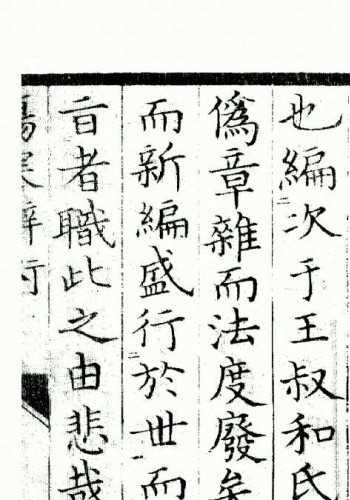 也編次于王叔和氏
僞章雜而法度廢矣
而新編盛行於世而
者職此之由悲哉